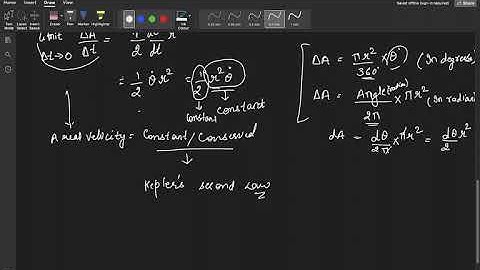 Home Insert Draw View
Limit ΔA/Δt = 1/2 dθ/dt r²
Δt→0
= 1/2 θ̇ r² = 1/2 r² θ̇
Constant constant
Areal velocity = Constant/Conserved
Kepler's second Law
ΔA = πr²/360° × θ° (In degrees)
ΔA = Angle(radian)/2π × πr² (In radian
dA = dθ/2π × πr² = dθ/2 r²